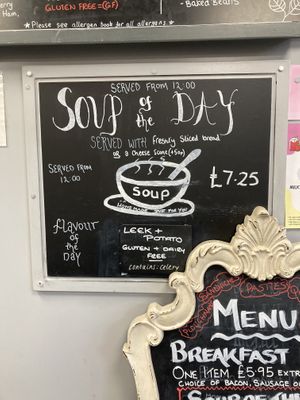 Ham,
GLUTEN FREE=(GF)
- BAKED BEANS
*Please see allergen book for all allergens*
SERVED FROM 12.00
SOUP of the DAY
SERVED WITH freshly Sliced bread
OR a Cheese Scone (+50p)
SERVED FROM
12.00
SOUP
£7.25
FOR YOU
flavour
of the
DAY
LEEK +
POTATO
GLUTEN + DAIRY
FREE
contains: celery
SANDWICHES
PASTIES
MENU
BREAKFAST
ONE ITEM £5.95 EXT
CHOICE OF BACON, SAUSAGE O
SOUP OF THE